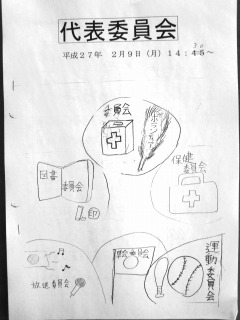 代表委員会
平成27年 2月9日(月) 14:45~
50
委員会
ボランティア
図書
委員会
印
保健
委員会
放送委員会
運動委員会